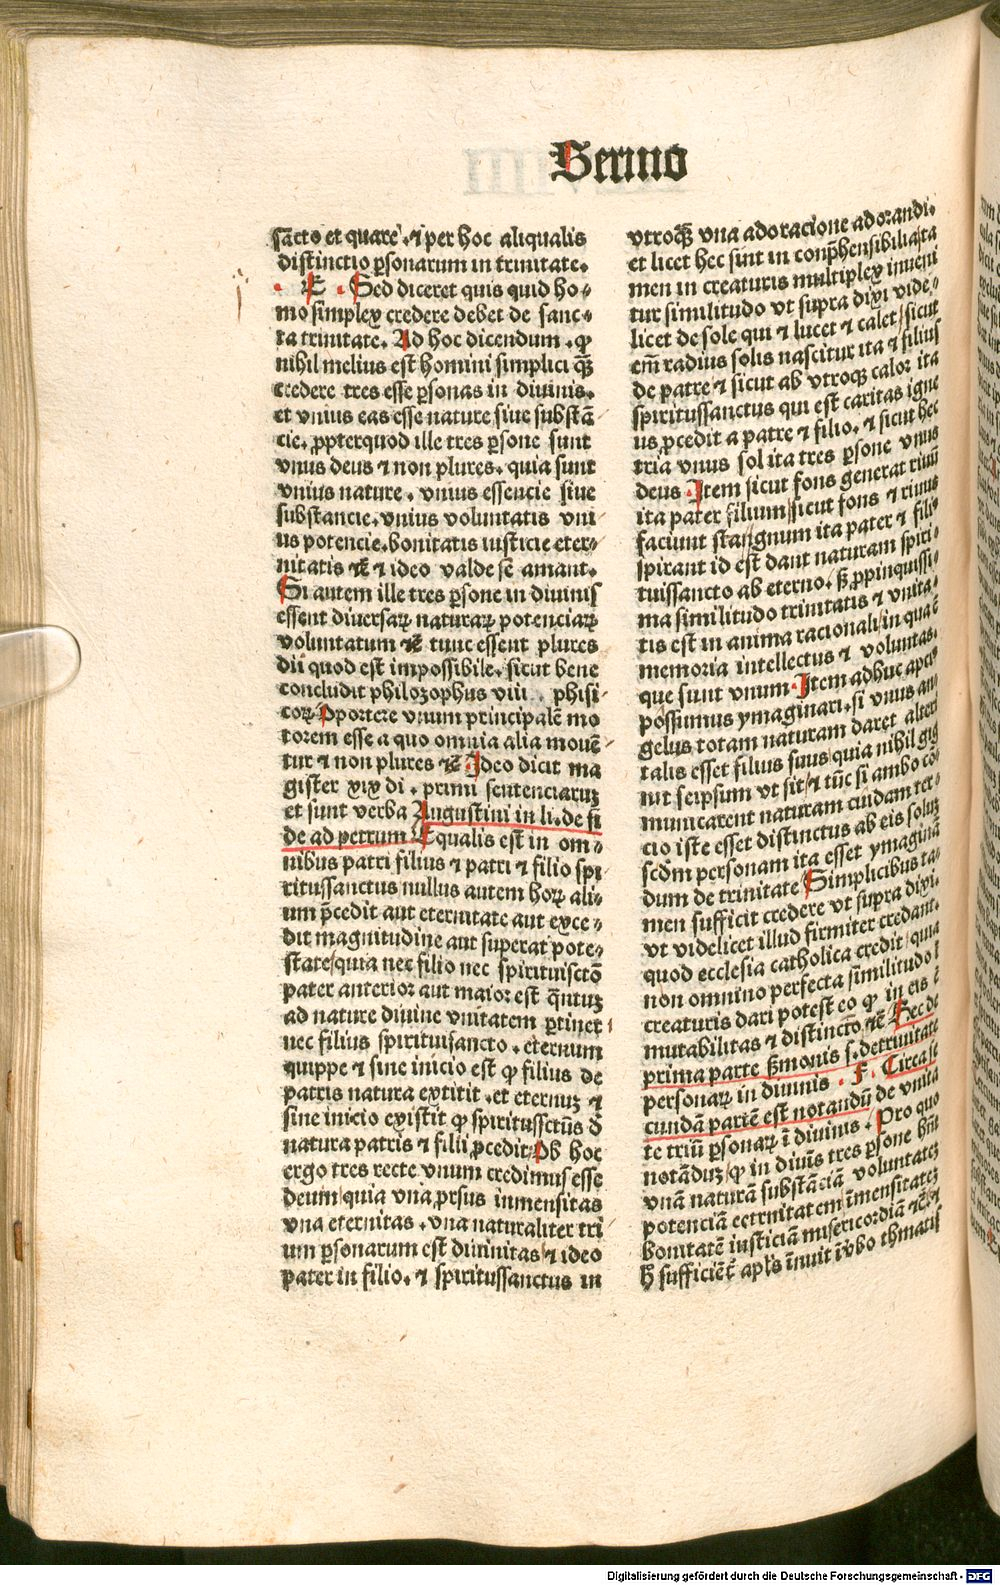 Sermo
sācto et quare . ⁊ per hoc aliqualis
distinctio ꝑsonarum in trinitate.
. E . Sed diceret quis quid ho⸗
mo simplex credere debet de sanc⸗
ta trinitate. Ad hoc dicendum . ꝙ
nihil melius est homini simplici qꝫ̄
credere tres esse ꝑsonas in diuinis.
et vnius eas esse nature siue substā
cie. ꝓpterquod ille tres ꝑsone sunt
vnus deus ⁊ non plures. quia sunt
vnius nature . vnius essencie siue
substancie. vnius voluntatis vni⸗
us potencie. bonitatis iusticie eter⸗
nitatis ⁊c̄ ⁊ ideo valde se amant.
Si autem ille tres ꝑsone in diuinis
essent diuersaꝝ naturaꝝ potenciaꝝ
voluntatum ⁊c̄ tunc essent plures
dii quod est impossibile. sicut bene
concludit philozophus viii . phisi⸗
coꝝ Oportere vnum principalē mo
torem esse a quo omnia alia mouē⸗
tur ⁊ non plures ⁊c̄ Ideo dicit ma
gister xix di . primi sentenciaruꝫ
et sunt verba Augustini in li. de fi
de ad petrum Equalis est in om⸗
nibus patri filius ⁊ patri ⁊ filio spi⸗
ritussanctus nullus autem hoꝝ ali⸗
um p̄cedit aut eternitate aut exce⸗
dit magnitudine aut superat pote⸗
state/quia nec filio nec spirituisctō
pater anterior aut maior est q̄ntuꝫ
ad nature diuine vnitatem ꝑtinet
nec filius spirituisancto . eternum
quippe ⁊ sine inicio est ꝙ filius de
patris natura extitit . et eternuꝫ ⁊
sine inicio existit ꝙ spiritussctūs d̄
natura patris ⁊ filii ꝓcedit. Ob hoc
ergo tres recte vnum credimus esse
deum/quia vna ꝓrsus inmensitas
vna eternitas . vna naturaliter tri
um ꝑsonarum est diuinitas/⁊ ideo
pater in filio. ⁊ spiritussanctus in
vtroqꝫ vna adoracione adorandi.
et licet hec sint in conp̄hensibilia/ta
men in creaturis multiplex inueni
tur similitudo vt supra dixi vide⸗
licet de sole qui ⁊ lucet ⁊ calet/sicut
em̄ radius solis nascitur ita ⁊ filius
de patre ⁊ sicut ab vtroqꝫ calor ita
spiritussanctus qui est caritas igne
us ꝓcedit a patre ⁊ filio. ⁊ sicut hec
tria vnus sol ita tres ꝑsone vnus
deus . Item sicut fons generat riuū
ita pater filium/sicut fons ⁊ riuus
faciunt stangnum ita pater ⁊ filiꝰ
spirant id est dant naturam spiri⸗
tuissancto ab eterno. sꝫ ꝓpinquissi⸗
ma similitudo trinitatis ⁊ vnita⸗
tis est in anima racionali/in qua ē
memoria intellectus ⁊ voluntas.
que sunt vnum. Item adhuc aperꝰ
possumus ymaginari. si vnus an⸗
gelus totam naturam daret alteri
talis esset filius suus quia nihil gig
nit seipsum vt sit/⁊ tūc si ambo cō
municarent naturam cuidam ter⸗
cio iste esset distinctus ab eis soluꝫ
scd̄m personam ita esset ymaginā
dum de trinitate Simplicibus ta⸗
men sufficit credere vt supra dixi.
vt videlicet illud firmiter credant.
quod ecclesia catholica credit/quia
non omnino perfecta similitudo ī
creaturis dari potest eo ꝙ in eis ē
mutabilitas ⁊ distinctō ⁊c̄ Hec de
prima parte s̄monis s. de trinitate
personaꝝ in diuinis . F . Circa se
cundā partē est notandū de vnita
te triū ꝑsonaꝝ ī diuinis . Pro quo
notāduꝫ/ꝙ in diuīs tres ꝑsone hn̄t
vnā naturā substāciā voluntateꝫ
potenciā eetrnitatem īmensitateꝫ
bonitatē iusticiā misericordiā ⁊c̄. ⁊
h̄ sufficiēt̄ apl̄s īnuit ī v̄bo thmatis
Digitalisierung gefördert durch die Deutsche Forschungsgemeinschaft - DFG